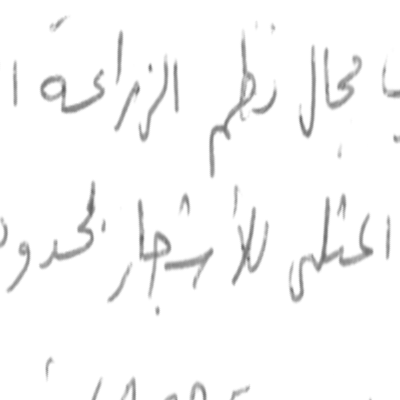 مجال نظم الزراعة ا
المثلى للأشجار لحدود